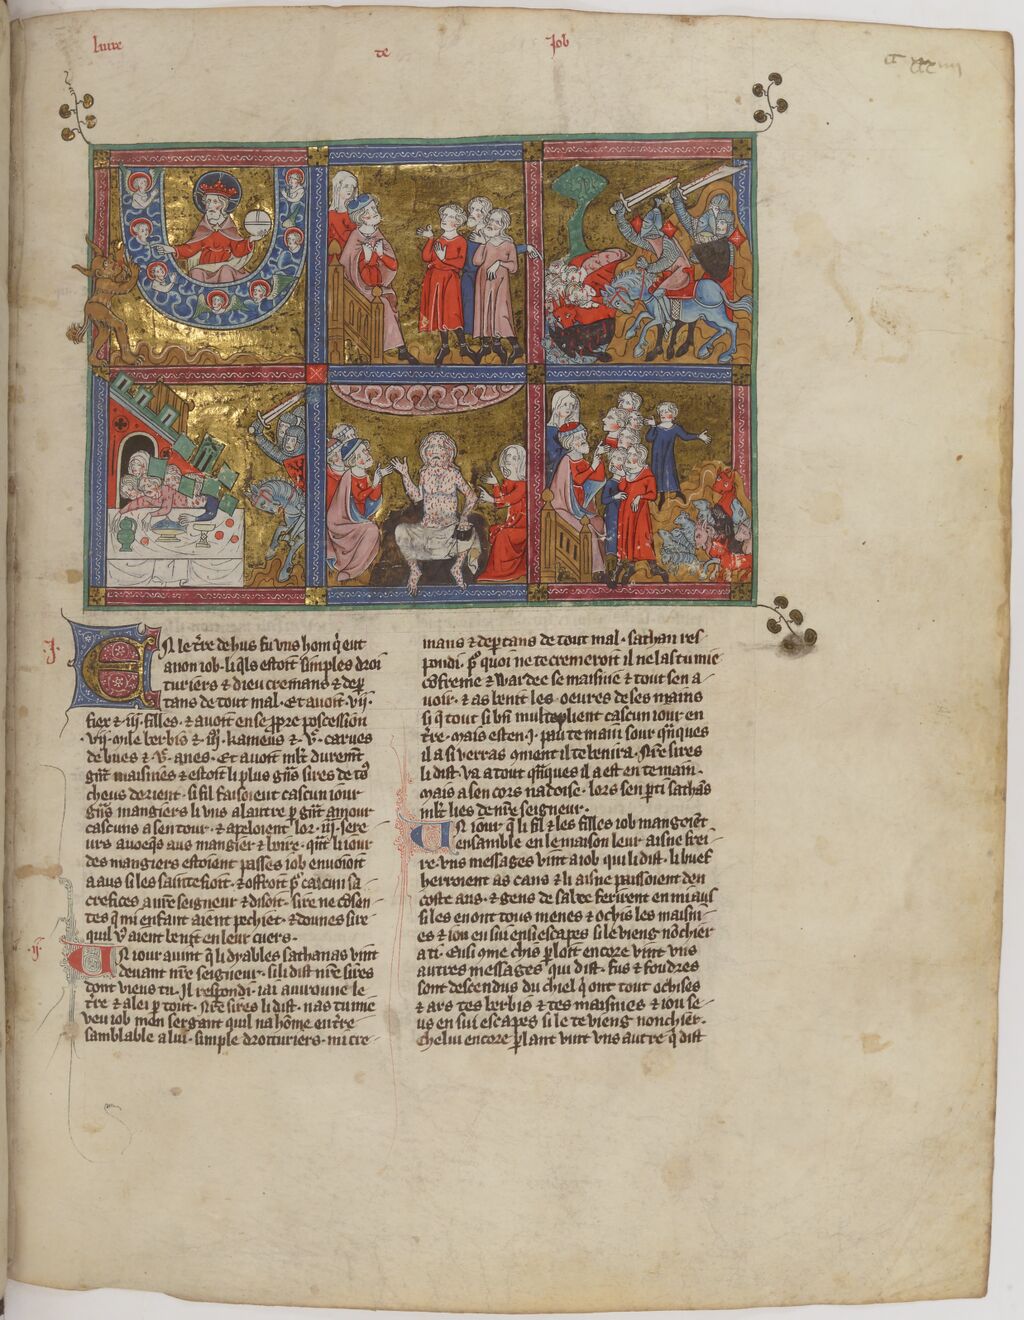 liure de Job
J.
EN le t̄re de hus fu vns hom q̇ eut
a non iob · li q̄ls estoit simples droi
turiers & dieu cremans & dep̄
tans de tout mal · Et auoit · vij ·
fiex & · iij · filles · & auoit en se p̱pre poscession
· vij · mile berbis & · iij · kameus & · v̄ · carues
de bues & · v̄ · anes · Et auoit ml̄t durem̄t
gn̄t maisnies & estoit li plus gn̄s sires de to9
cheus de rient · si fil faisoient cascun iour
gn̄s mangiers li vns a lautre p̱ gn̄t amour
cascuns a sen tour · & apeloient lor · iij · sere
urs auoeqs aus mangier & boire · qn̄t li iour
des mangiers estoient passes iob enuoioit
a aus si les saintefioit · & offroit p̄ cascun sa
crefices a nr̄e seigneur & disoit · sire ne c̄sen
tes q̄ mi enfant aient pechiet · & dounes sire
quil v̄ aient benit en leur cuers ·
ij.
UN iour auint q̄ li dyables sathanas vint
deuant nr̄e seigneur · si li dist nr̄e sires
dont viens tu · Il respondi · iai auiroune le
t̄re & alei p̱ tout · Nr̄e sires li dist · nas tu mie
veu iob men sergant quil na hōme en t̄re
samblable a lui · simple droituriers · mi cre
mans & dep̱tans de tout mal · sathan res
pondi · p̄ quoi ne te cremeroit il ne las tu mie
c̄freme & wardee se maisnie & tout sen a
uoir · & as benit les oeures de ses mains
si q̄ tout si bn̄ multeplient cascun iour en
t̄re · mais esten · j · pau te main sour qn̄ques
il a si verras 9ment il te benira · Nr̄e sires
li dist · va a tout qn̄ques il a est en te main ·
mais a sen cors nadoise · lors sen p̱ti sathās
ml̄t lies de nr̄e seigneur ·
UN iour q̄ li fil & les filles iob mangoiēt
ensamble en le maison leur aisne frei
re · vns messages vint a iob qui li dist · li buef
herroient as cans & li aisne paissoient den
coste aus · & gens de sabee ferirent en mi aus
si les enont tous menes & ochis les maisni
es & iou en sui ensi escapes si le vieng nōchier
a ti · Ensi 9me chis p̱loit encore vint vns
autres messages qui dist · fus & foudres
sont descendus du chiel q̇ ont tout ochises
& ars tes berbis & tes maisnies & iou se
us en sui escapes si le te vieng nonchier ·
Chelui encore p̱lant vint vns autre q̇ dist